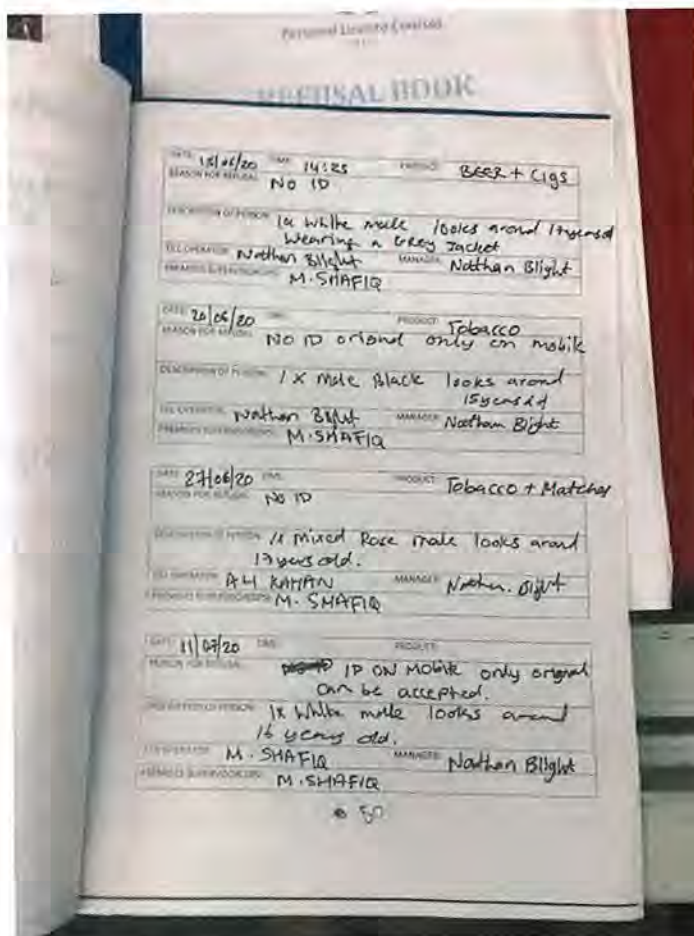 Personal Licence Courses
REFUSAL BOOK
DATE: 15/06/20 TIME: 14:25 PRODUCT: BEER + Cigs
REASON FOR REFUSAL: NO ID
DESCRIPTION OF PERSON: 1x White male looks around
Wearing a Grey Jacket
TILL OPERATOR: Nathan Blight MANAGER: Natthan Blight
M. SHAFIQ
DATE: 20/06/20 TIME: PRODUCT: Tobacco
REASON FOR REFUSAL: NO ID orignal only on mobile
DESCRIPTION OF PERSON: 1 x Male Black looks around
15 years old
TILL OPERATOR: Nathan Blight MANAGER: Nathan Blight
M. SHAFIQ
DATE: 27/06/20 TIME: PRODUCT: Tobacco + Matches
REASON FOR REFUSAL: NO ID
DESCRIPTION OF PERSON: 1x Mixed Rase male looks around
17 years old.
TILL OPERATOR: ALI MANAGER: Nathan. Blight
M. SHAFIQ
DATE: 11/07/20 TIME: PRODUCT:
REASON FOR REFUSAL: ID ON Mobile only orignal
can be accepted.
DESCRIPTION OF PERSON: 1x White male looks around
16 years old.
TILL OPERATOR: M. SHAFIQ MANAGER: Nathan Blight
M. SHAFIQ
50